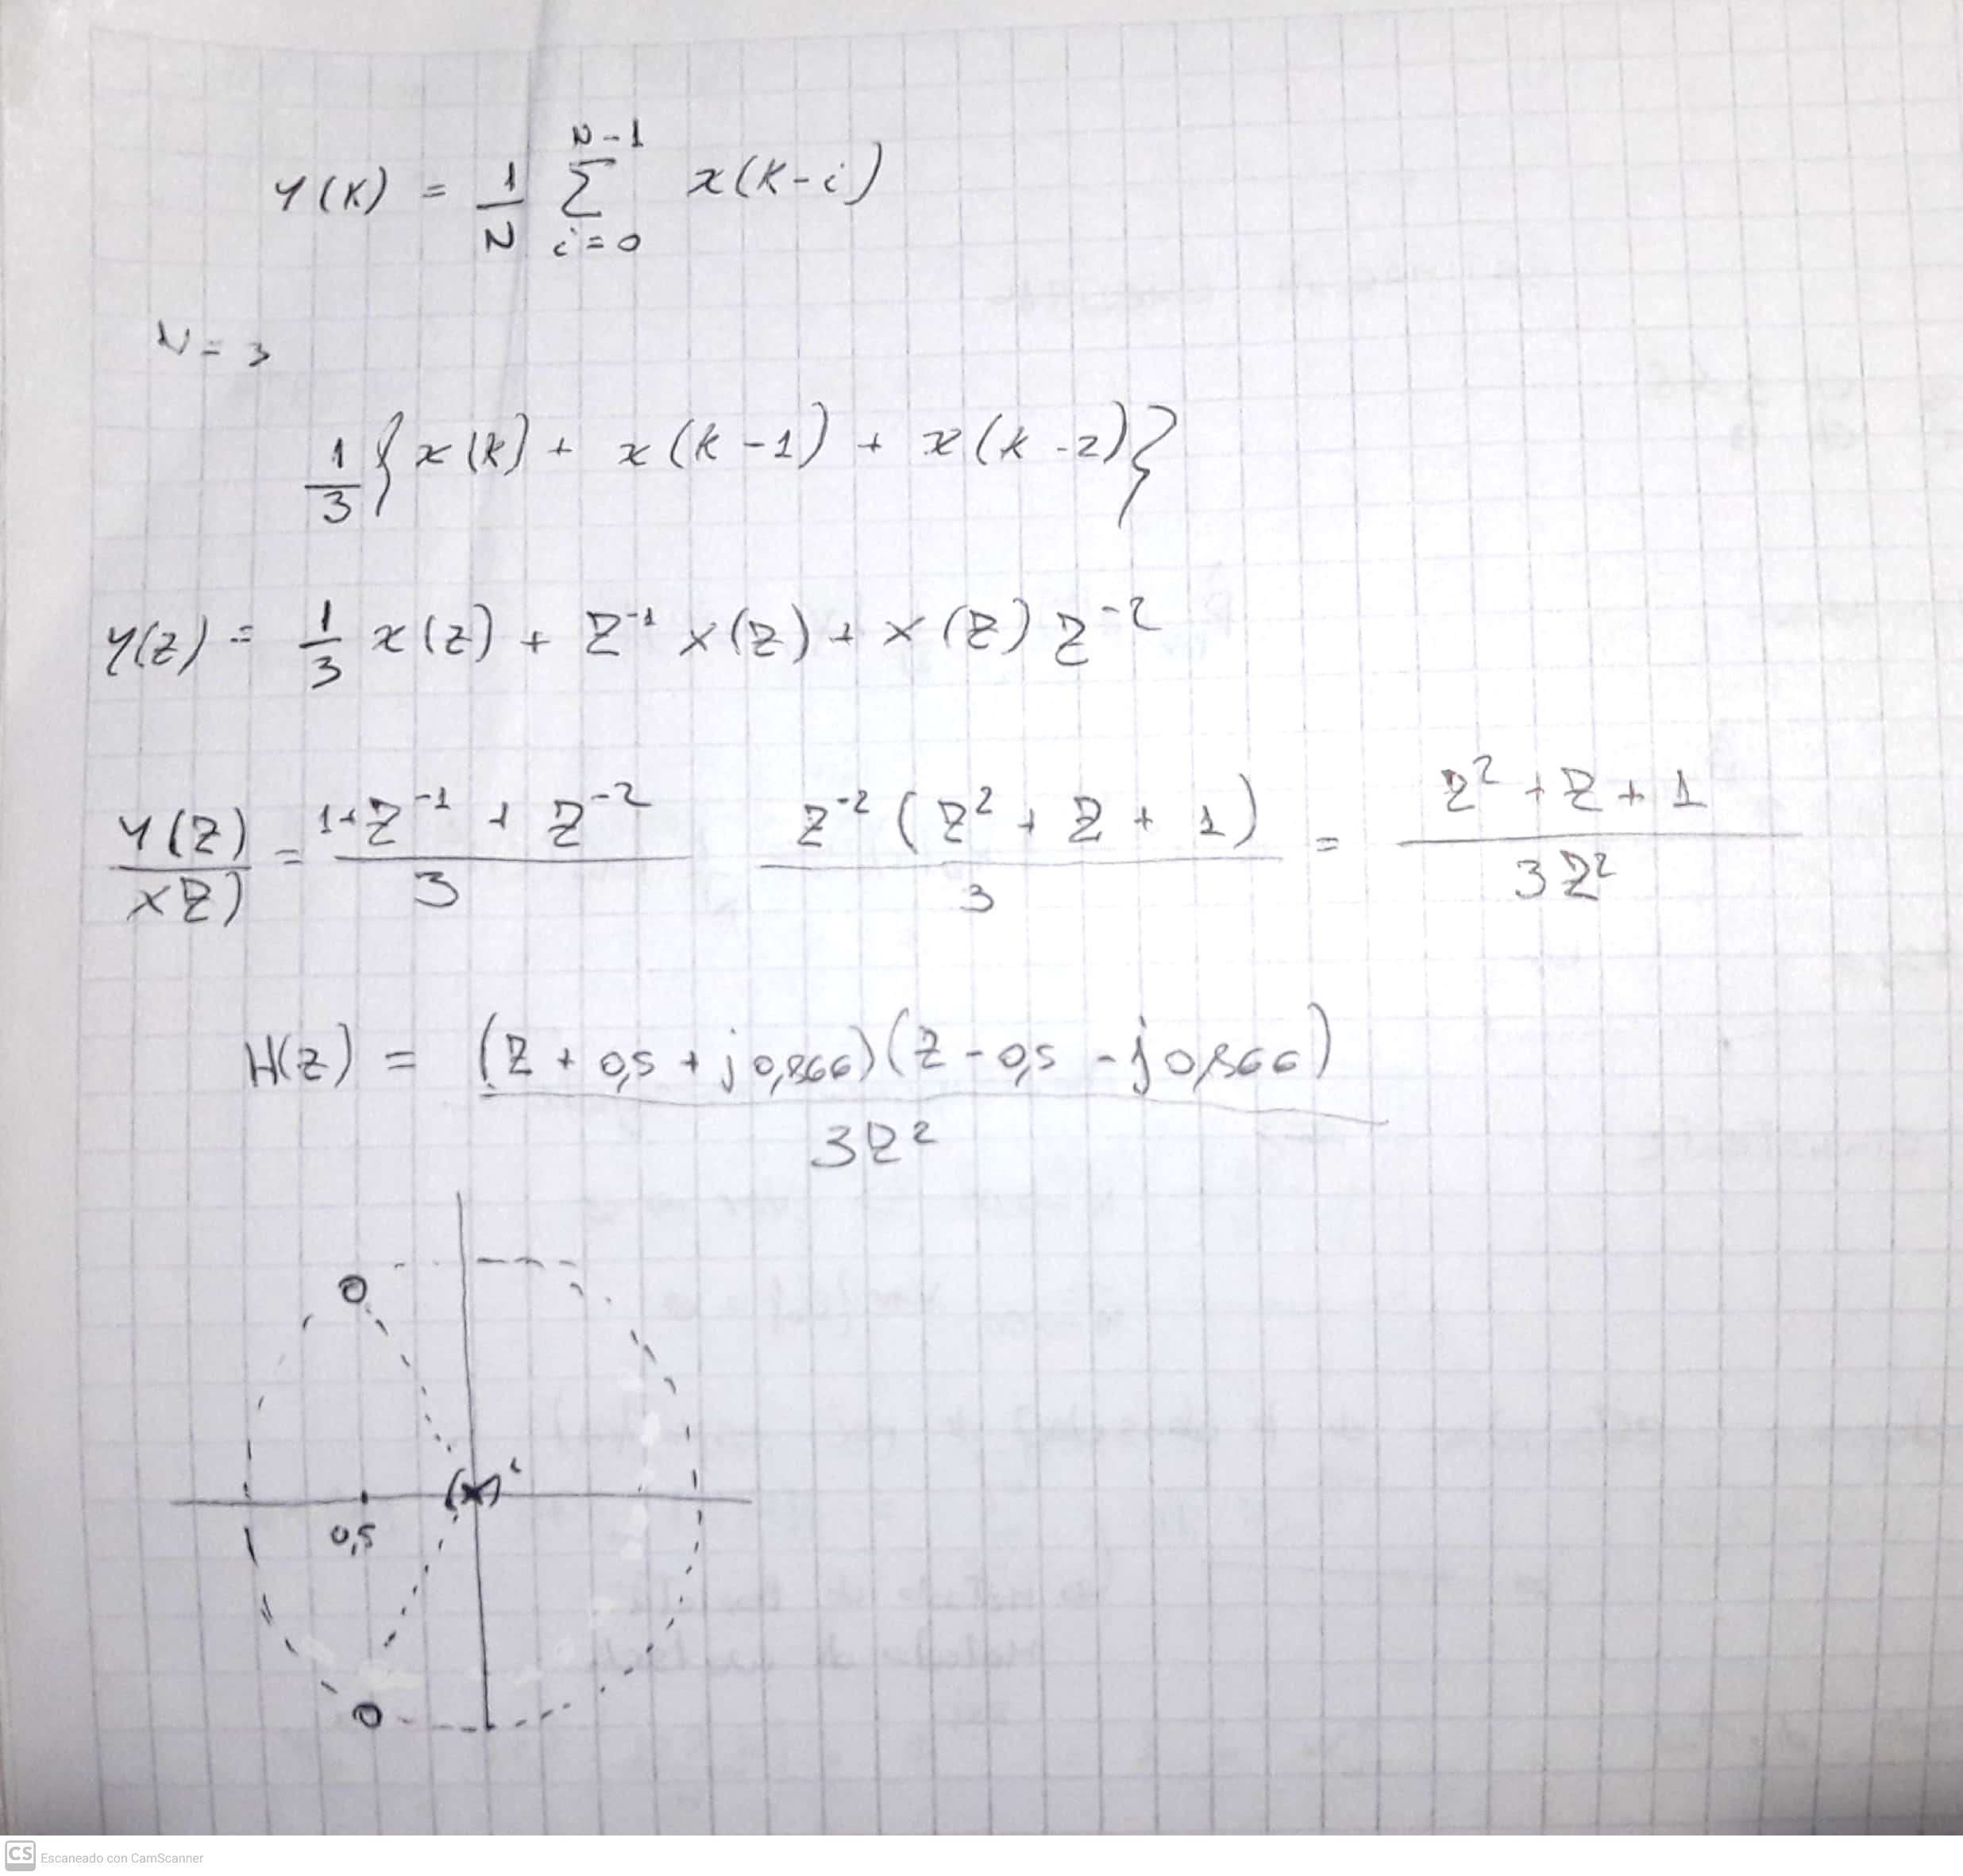 Y(K) = 1/N Σ_{i=0}^{N-1} x(K-i)
N = 3
1/3 { x(k) + x(k-1) + x(k-2) }
Y(z) = 1/3 x(z) + z^{-1} x(z) + x(z) z^{-2}
Y(z)/xz) = (1+z^{-1} + z^{-2})/3   z^{-2} (z^2 + z + 1)/3 = (z^2 + z + 1)/(3z^2)
H(z) = (z + 0,5 + j0,866)(z - 0,5 - j0,866)/(3z^2)
0,5
CS Escaneado con CamScanner